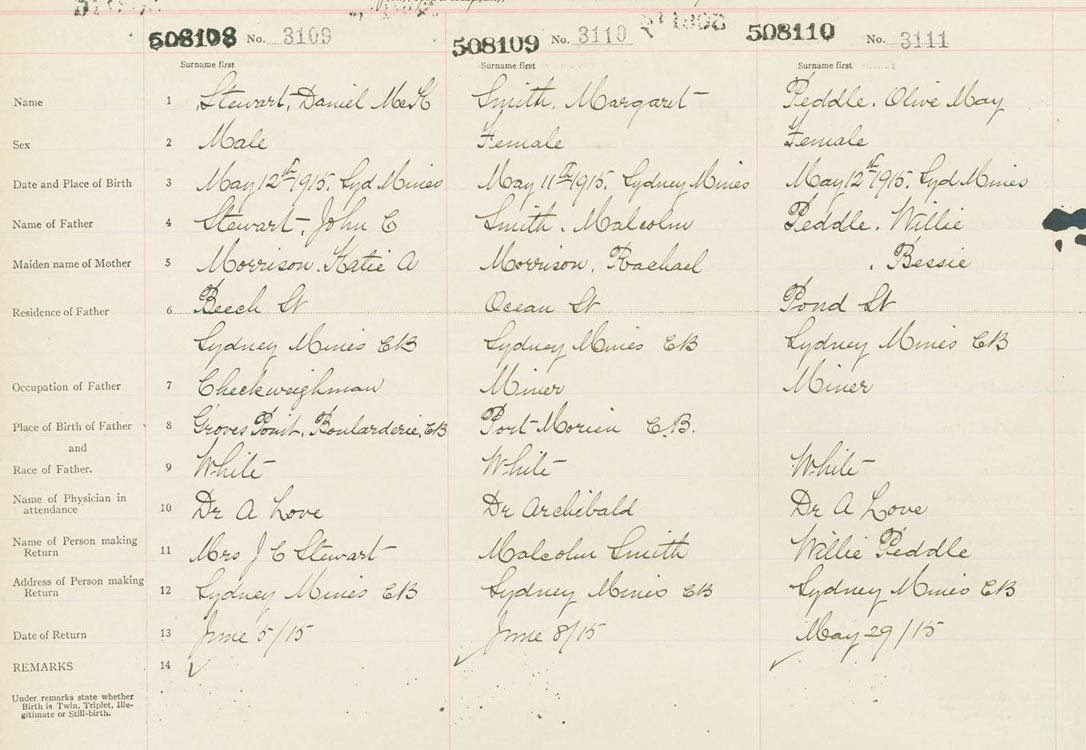 508108 No. 3109 508109 No. 3110 508110 No. 3111
Surname first Surname first Surname first
Name 1 Stewart, Daniel McK Smith, Margaret Peddle, Olive May
Sex 2 Male Female Female
Date and Place of Birth 3 May 12th 1915, Syd Mines May 11th 1915, Sydney Mines May 12th 1915, Syd Mines
Name of Father 4 Stewart, John C Smith, Malcolm Peddle, Willie
Maiden name of Mother 5 Morrison, Katie A Morrison, Rachael , Bessie
Residence of Father 6 Beech St Ocean St Pond St
Sydney Mines CB Sydney Mines CB Sydney Mines CB
Occupation of Father 7 Checkweighman Miner Miner
Place of Birth of Father 8 Groves Point, Boularderie, CB Port Morien C.B.
and
Race of Father. 9 White White White
Name of Physician in
attendance 10 Dr A Love Dr Archibald Dr A Love
Name of Person making
Return 11 Mrs J C Stewart Malcolm Smith Willie Peddle
Address of Person making
Return 12 Sydney Mines CB Sydney Mines CB Sydney Mines CB
Date of Return 13 June 5/15 June 8/15 May 29/15
REMARKS 14
Under remarks state whether
Birth is Twin, Triplet, Ille-
gitimate or Still-birth.